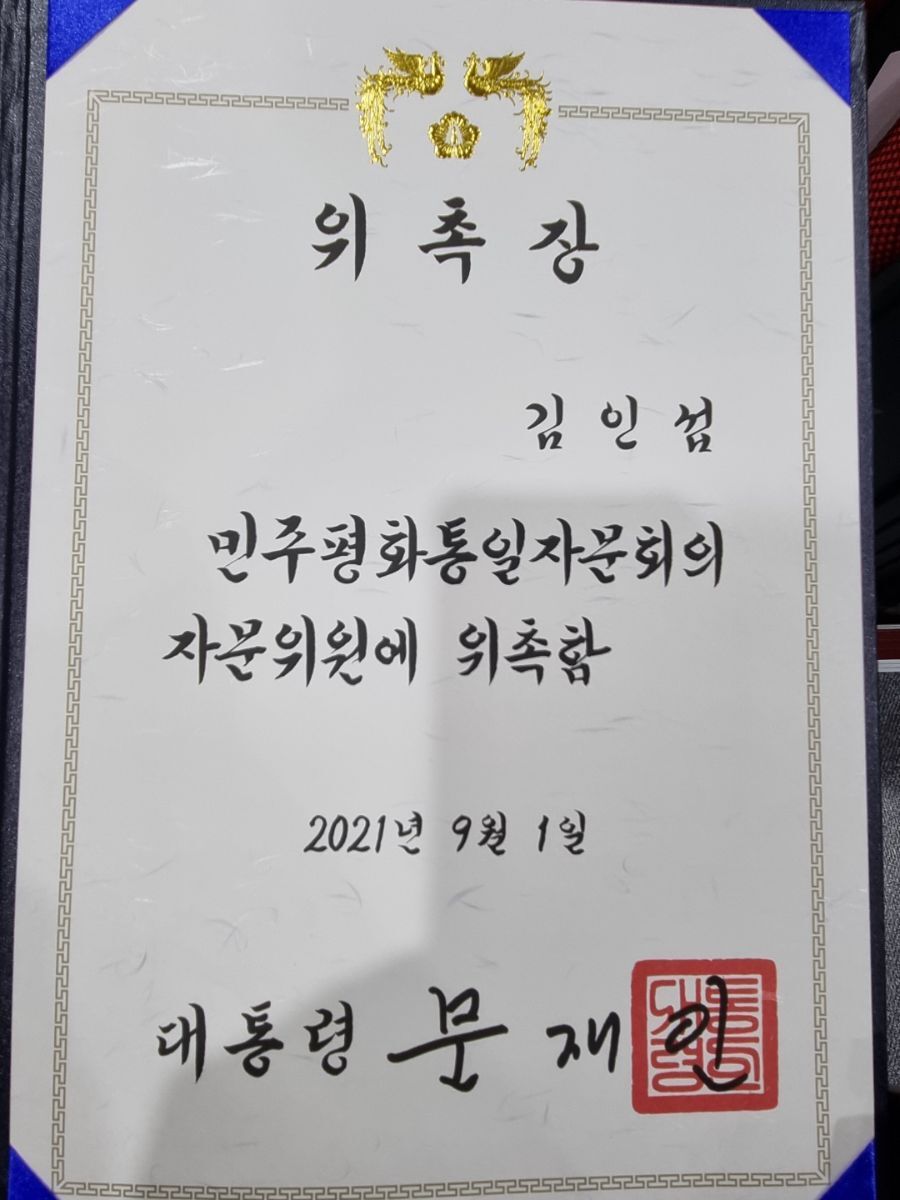 위촉장
김인섭
민주평화통일자문회의
자문위원에 위촉함
2021년 9월 1일
대통령 문재인